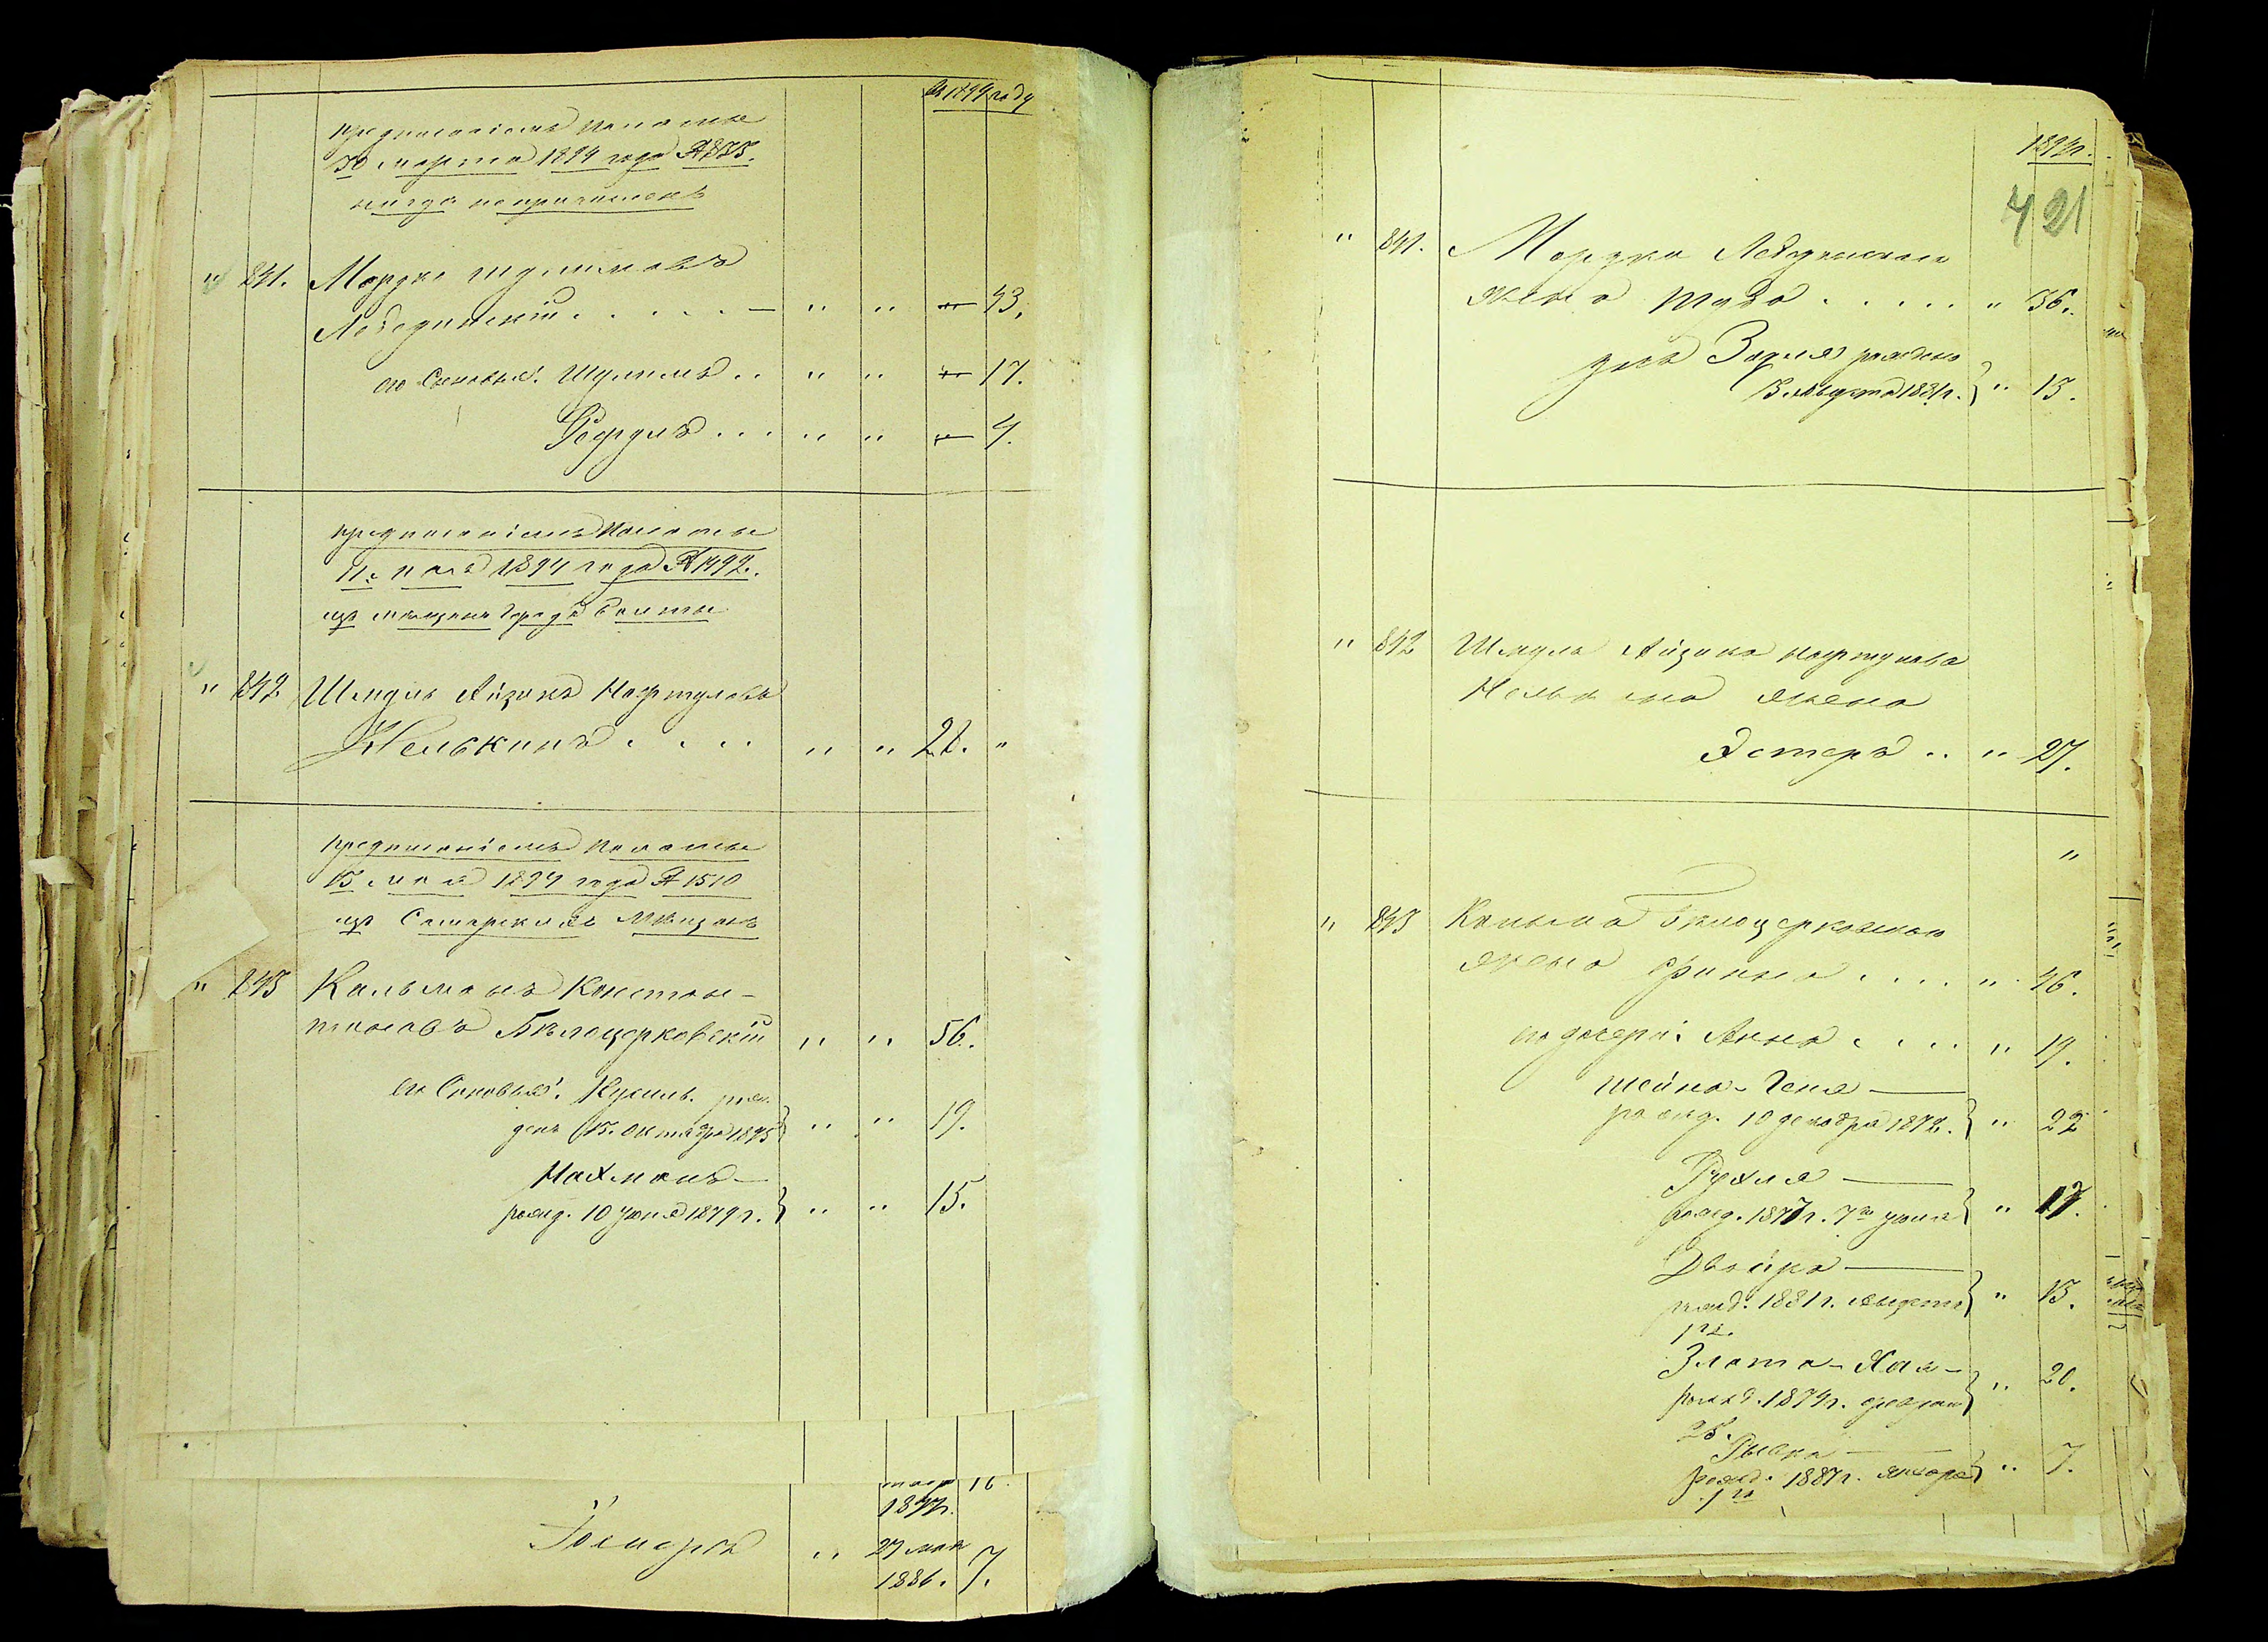 въ 1894 году
предписаніемъ палаты
30 марта 1894 года № 835.
нигде непричисленъ
" 841. Мордко Шулимовъ
Лебединскій . . . . . — " " — 43.
его Сыновья: Шулимъ . . " " — 17.
Сруль . . . " " — 4.
предписаніемъ Палаты
11. мая 1894 года № 1492.
изъ мѣщанъ города Балты
" 842 Шмуль Айзикъ Нафтуловъ
Нелькинъ . . . . " " 21. "
предписаніемъ палаты
13 мая 1894 года № 1510
изъ Самарскихъ Мѣщанъ
" 843 Кальманъ Констан-
тиновъ Бѣлоцерковскій " " 56.
его Сыновья: Кусиль. рож
денъ 15. Октября 1875 } " " 19.
Нахманъ —
рожд. 10 Іюня 1879 г. } " " 15.
16.
1877 г.
" 27 мая
1886. 7.
1894 г.
421
" 841. Мордка Лебединскаго
жена Туба . . . . . " 36.
дочь рождена
3 Августа 1881 г. } " 13.
" 842 Шмуля Айзика Нафтулова
Нелькина жена
Эстеръ . . " 27.
"
" 843 Кальмана Бѣлоцерковскаго
жена Фрима . . . . " 46.
его дочери: Анна . . . . " 19.
Шейна-Геня —
рожд. 10 декабря 1872. } " 22
Рухля —
рожд. 1877 г. 7го Іюня } " 17.
Двойра —
рожд. 1881 г. Августа } " 13.
1го.
Злата-Хая —
рожд. 1874 г. февраля } " 20.
25.
Рывка —
рожд. 1887 г. января } " 7.
1го